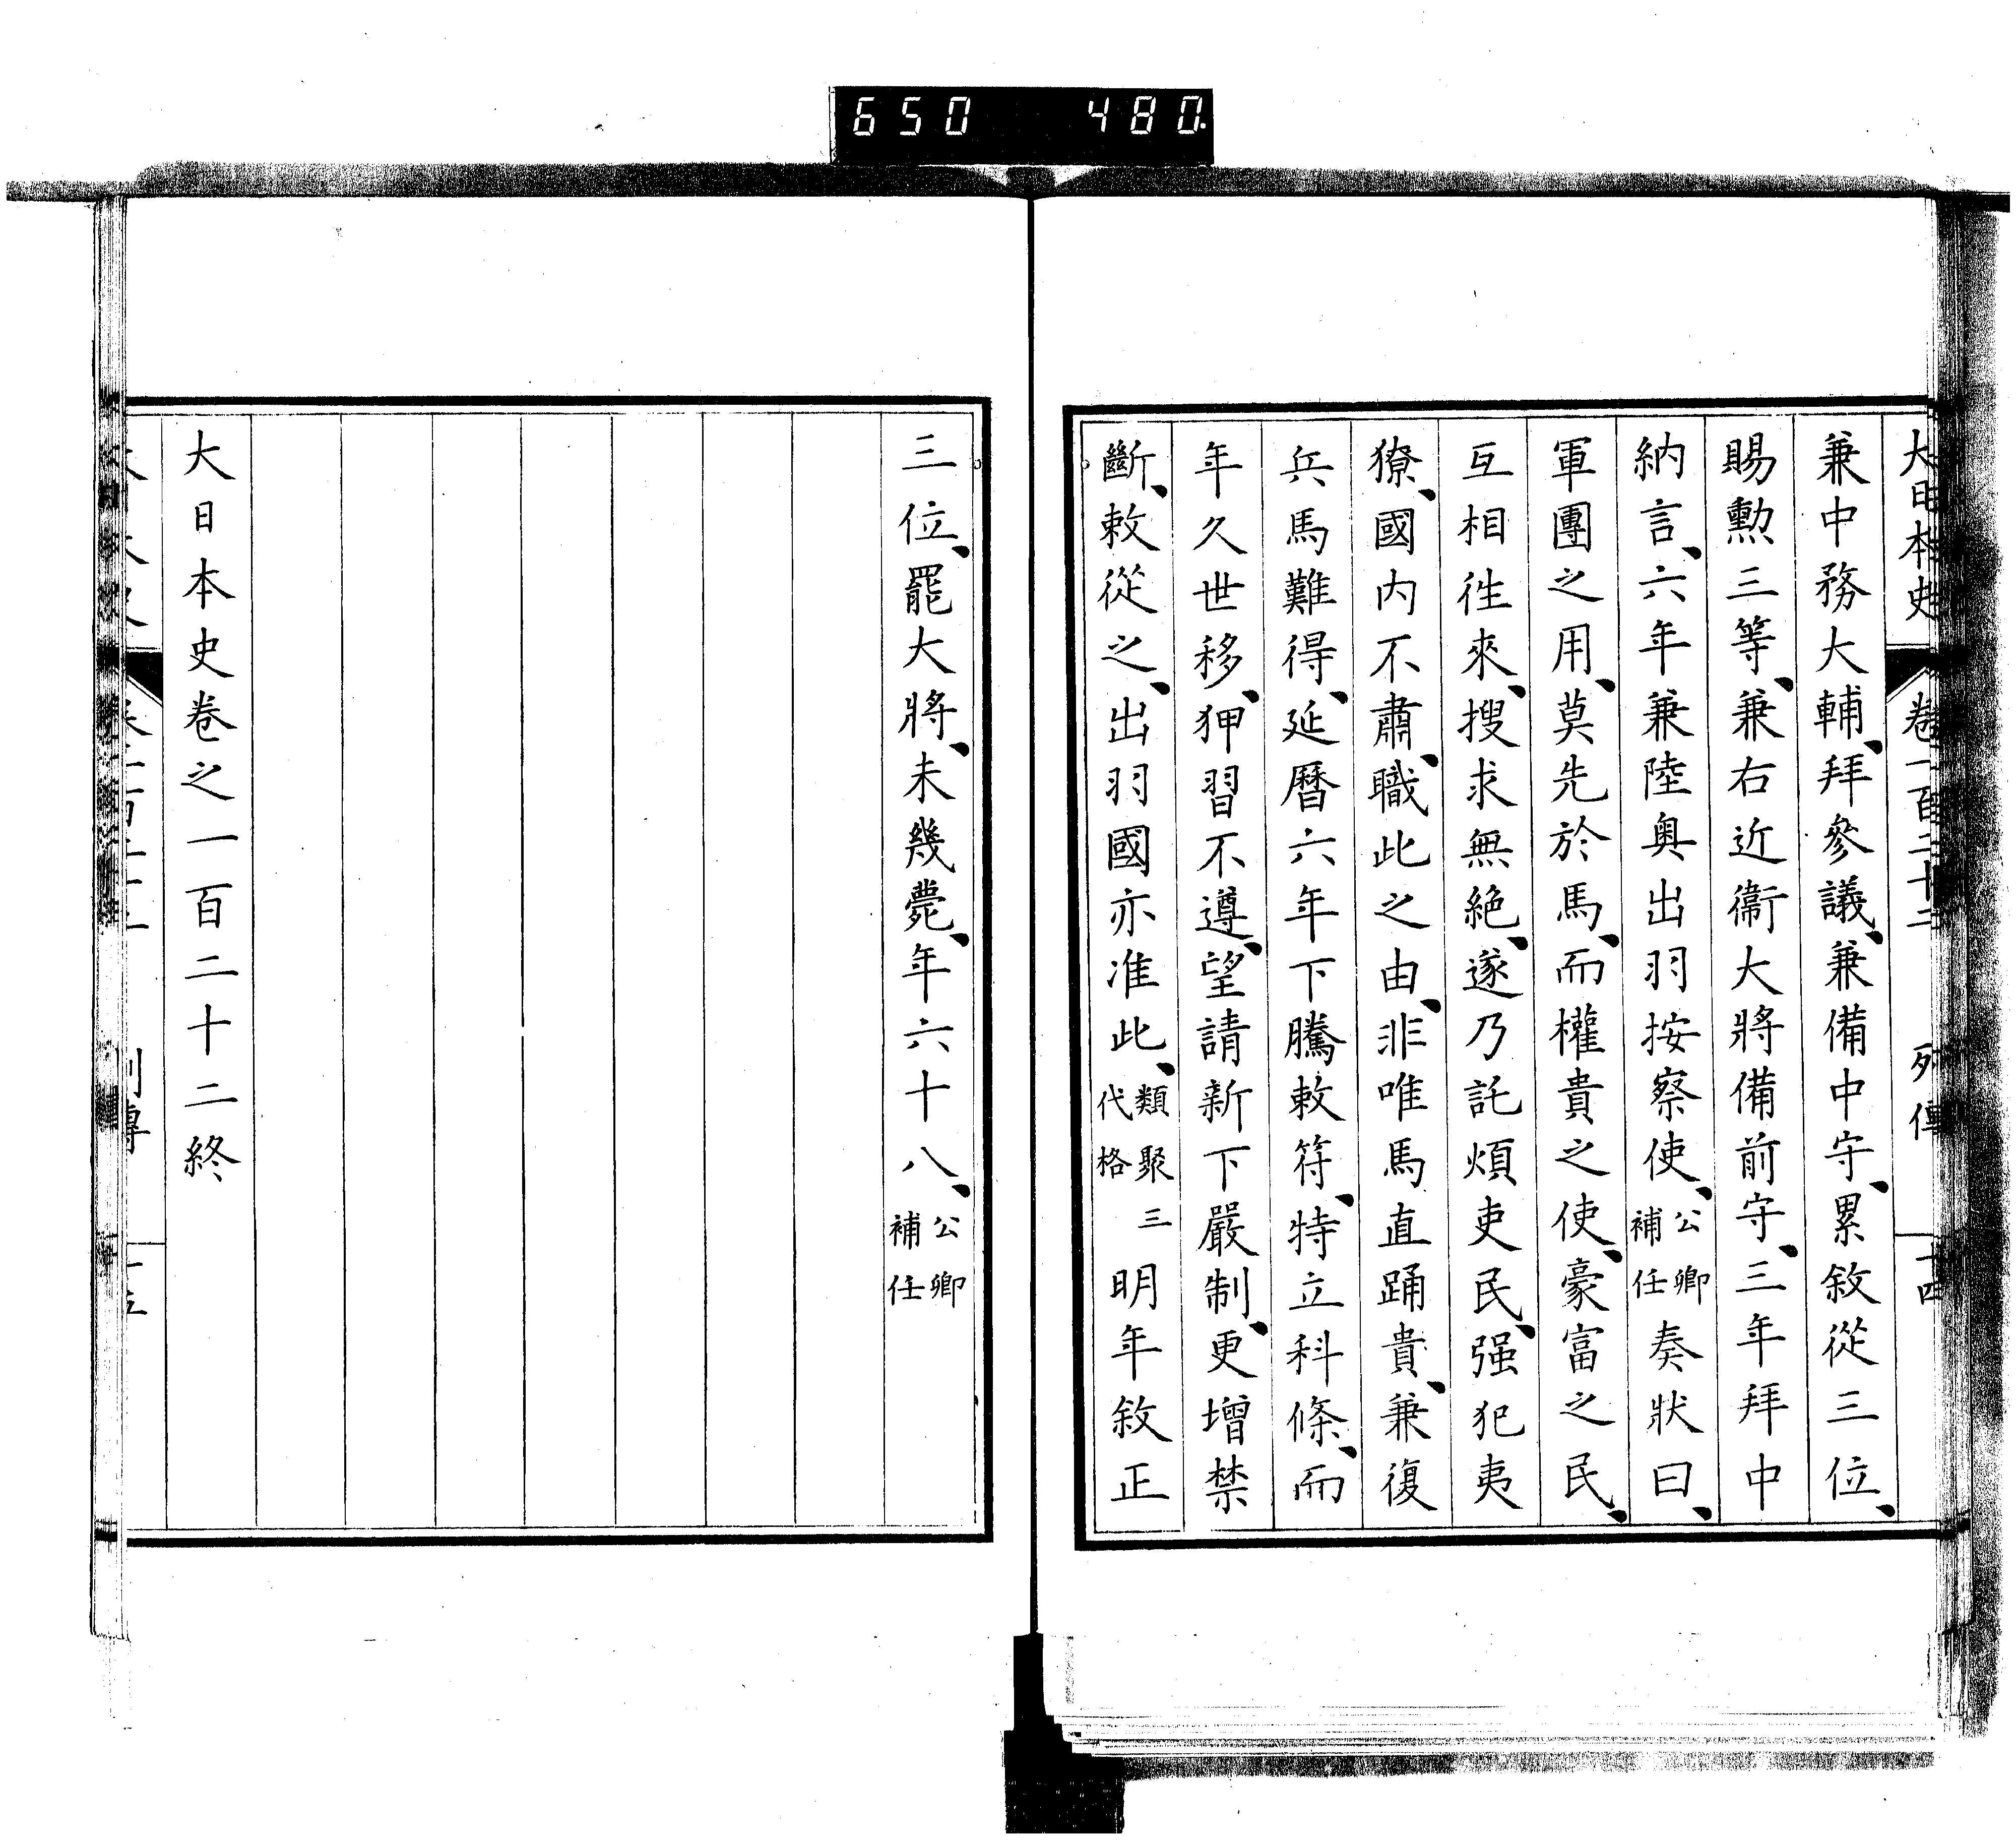 650 480
大日本史 卷一百二十二 列傳 十四
兼中務大輔、拜參議、兼備中守、累敘從三位、
賜勳三等、兼右近衞大將備前守、三年拜中
納言、六年兼陸奥出羽按察使、公卿補任奏狀曰、
軍團之用、莫先於馬、而權貴之使、豪富之民、
互相徃來、搜求無絶、遂乃託煩吏民、强犯夷
獠、國内不肅、職此之由、非唯馬直踊貴、兼復
兵馬難得、延曆六年下騰敕符、特立科條、而
年久世移、狎習不遵、望請新下嚴制、更增禁
斷、敕從之、出羽國亦准此、類聚三代格明年敘正
三位、罷大將、未幾薨、年六十八、公卿補任
大日本史卷之一百二十二終